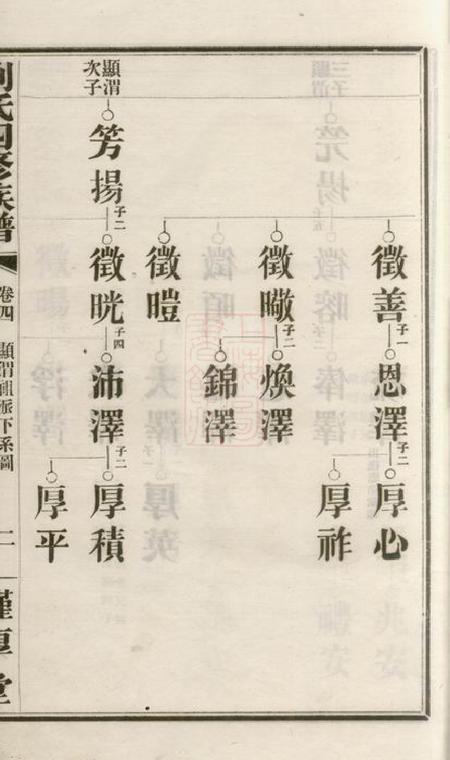 徵善子一恩澤子二厚心
厚祚
徵子二煥澤
錦澤
徵暟
顯渭
次子
揚子二徵晄子四沛澤子二厚積
厚平
劉氏四修族譜
卷四
顯渭祖派下系圖
二
堂